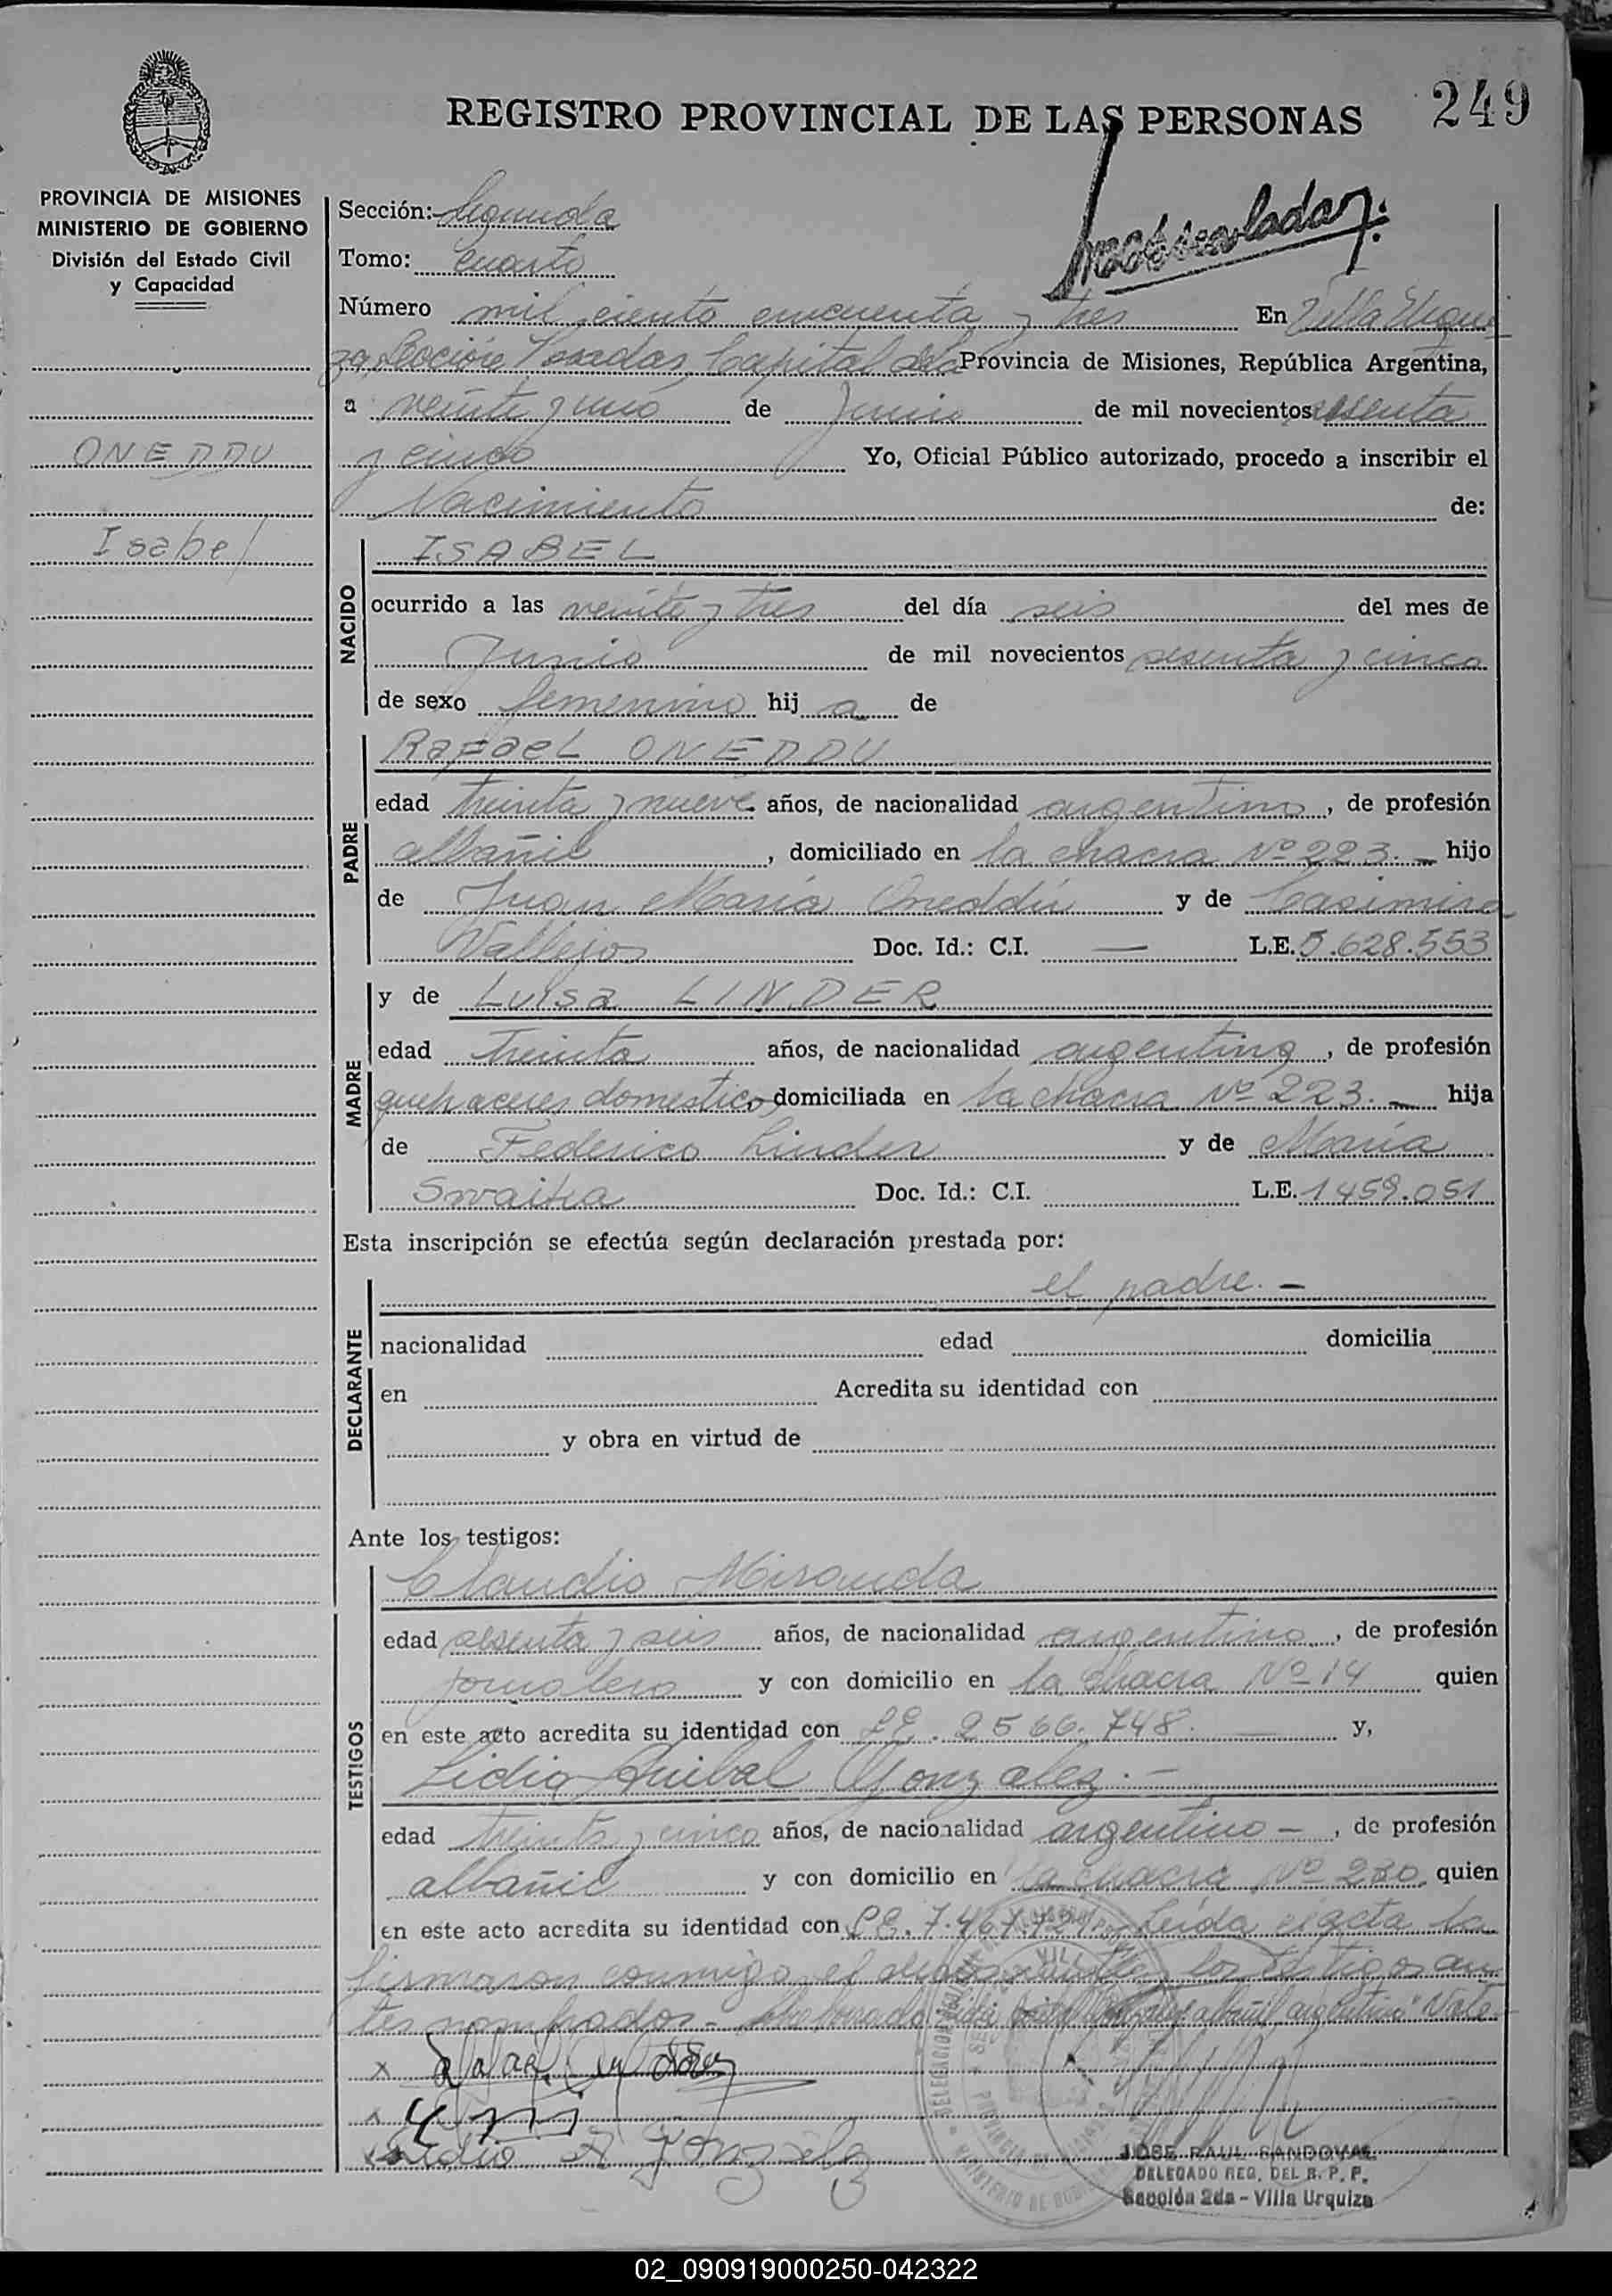 REGISTRO PROVINCIAL DE LAS PERSONAS
249
PROVINCIA DE MISIONES
MINISTERIO DE GOBIERNO
División del Estado Civil
y Capacidad
ONEDDU
Isabel
Sección: Segunda
Tomo: cuarto
Número mil ciento cincuenta y tres En Villa Urqui
za, Sección Posadas, Capital de la Provincia de Misiones, República Argentina,
a veinte y uno de Junio de mil novecientos sesenta
y cinco Yo, Oficial Público autorizado, procedo a inscribir el
Nacimiento de:
NACIDO
ISABEL
ocurrido a las veinte y tres del día seis del mes de
Junio de mil novecientos sesenta y cinco
de sexo femenino hij a de
PADRE
Rafael ONEDDU
edad treinta y nueve años, de nacionalidad argentino, de profesión
albañil, domiciliado en la chacra Nº 223. — hijo
de Juan María Oneddú y de Casimira
Vallejos Doc. Id.: C.I. — L.E. 5.628.553
MADRE
y de Luisa LINDER
edad treinta años, de nacionalidad argentina, de profesión
quehaceres domesticos domiciliada en la chacra Nº 223. — hija
de Federico Linder y de María
Doc. Id.: C.I. L.E. 1459.051
Esta inscripción se efectúa según declaración prestada por:
DECLARANTE
el padre. —
nacionalidad edad domicilia
en Acredita su identidad con
y obra en virtud de
Ante los testigos:
TESTIGOS
Claudio Miranda
edad sesenta y seis años, de nacionalidad argentino, de profesión
jornalero y con domicilio en la chacra Nº 14 quien
en este acto acredita su identidad con LE. 2566.748. — y,
Lidio Anibal Gonzalez. —
edad treinta y cinco años, de nacionalidad argentino —, de profesión
albañil y con domicilio en la chacra Nº 230, quien
en este acto acredita su identidad con LE. 7.467. Leída el acta la
firmaron conmigo el declarante y los testigos an
tes nombrados. —
x Rafael
x
x Lidio A Gonzalez
JOSE RAUL SANDOVAL
DELEGADO REG. DEL R. P. P.
Sección 2da - Villa Urquiza
02_090919000250-042322